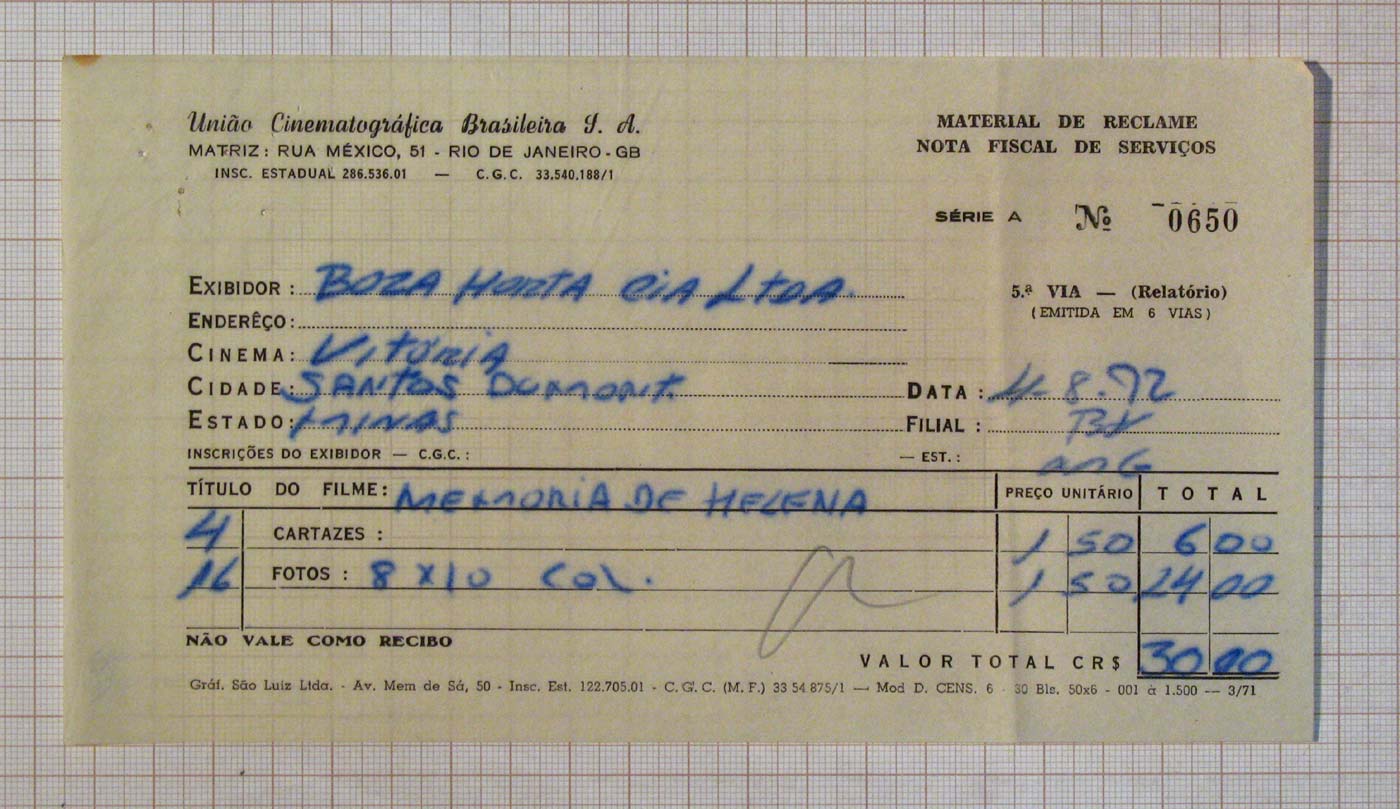 União Cinematográfica Brasileira S. A.
MATRIZ: RUA MÉXICO, 51 - RIO DE JANEIRO-GB
INSC. ESTADUAL 286.536.01 — C.G.C. 33.540.188/1
MATERIAL DE RECLAME
NOTA FISCAL DE SERVIÇOS
SÉRIE A Nº 0650
5.ª VIA — (Relatório)
(EMITIDA EM 6 VIAS)
EXIBIDOR: BOZA HORTA CIA LTDA.
ENDERÊÇO:
CINEMA: VITÓRIA
CIDADE: SANTOS DUMONT.
ESTADO: MINAS
DATA: 8.72
FILIAL:
INSCRIÇÕES DO EXIBIDOR — C.G.C.: — EST.:
TÍTULO DO FILME: MEMORIA DE HELENA PREÇO UNITÁRIO TOTAL
4 CARTAZES: 1 50 6 00
16 FOTOS: 8 X 10 COL. 1 50 24 00
NÃO VALE COMO RECIBO
VALOR TOTAL CR$ 30 00
Gráf. São Luiz Ltda. - Av. Mem de Sá, 50 - Insc. Est. 122.705.01 - C.G.C. (M.F.) 33 54 875/1 — Mod D. CENS. 6 - 30 Bls. 50x6 - 001 à 1.500 — 3/71